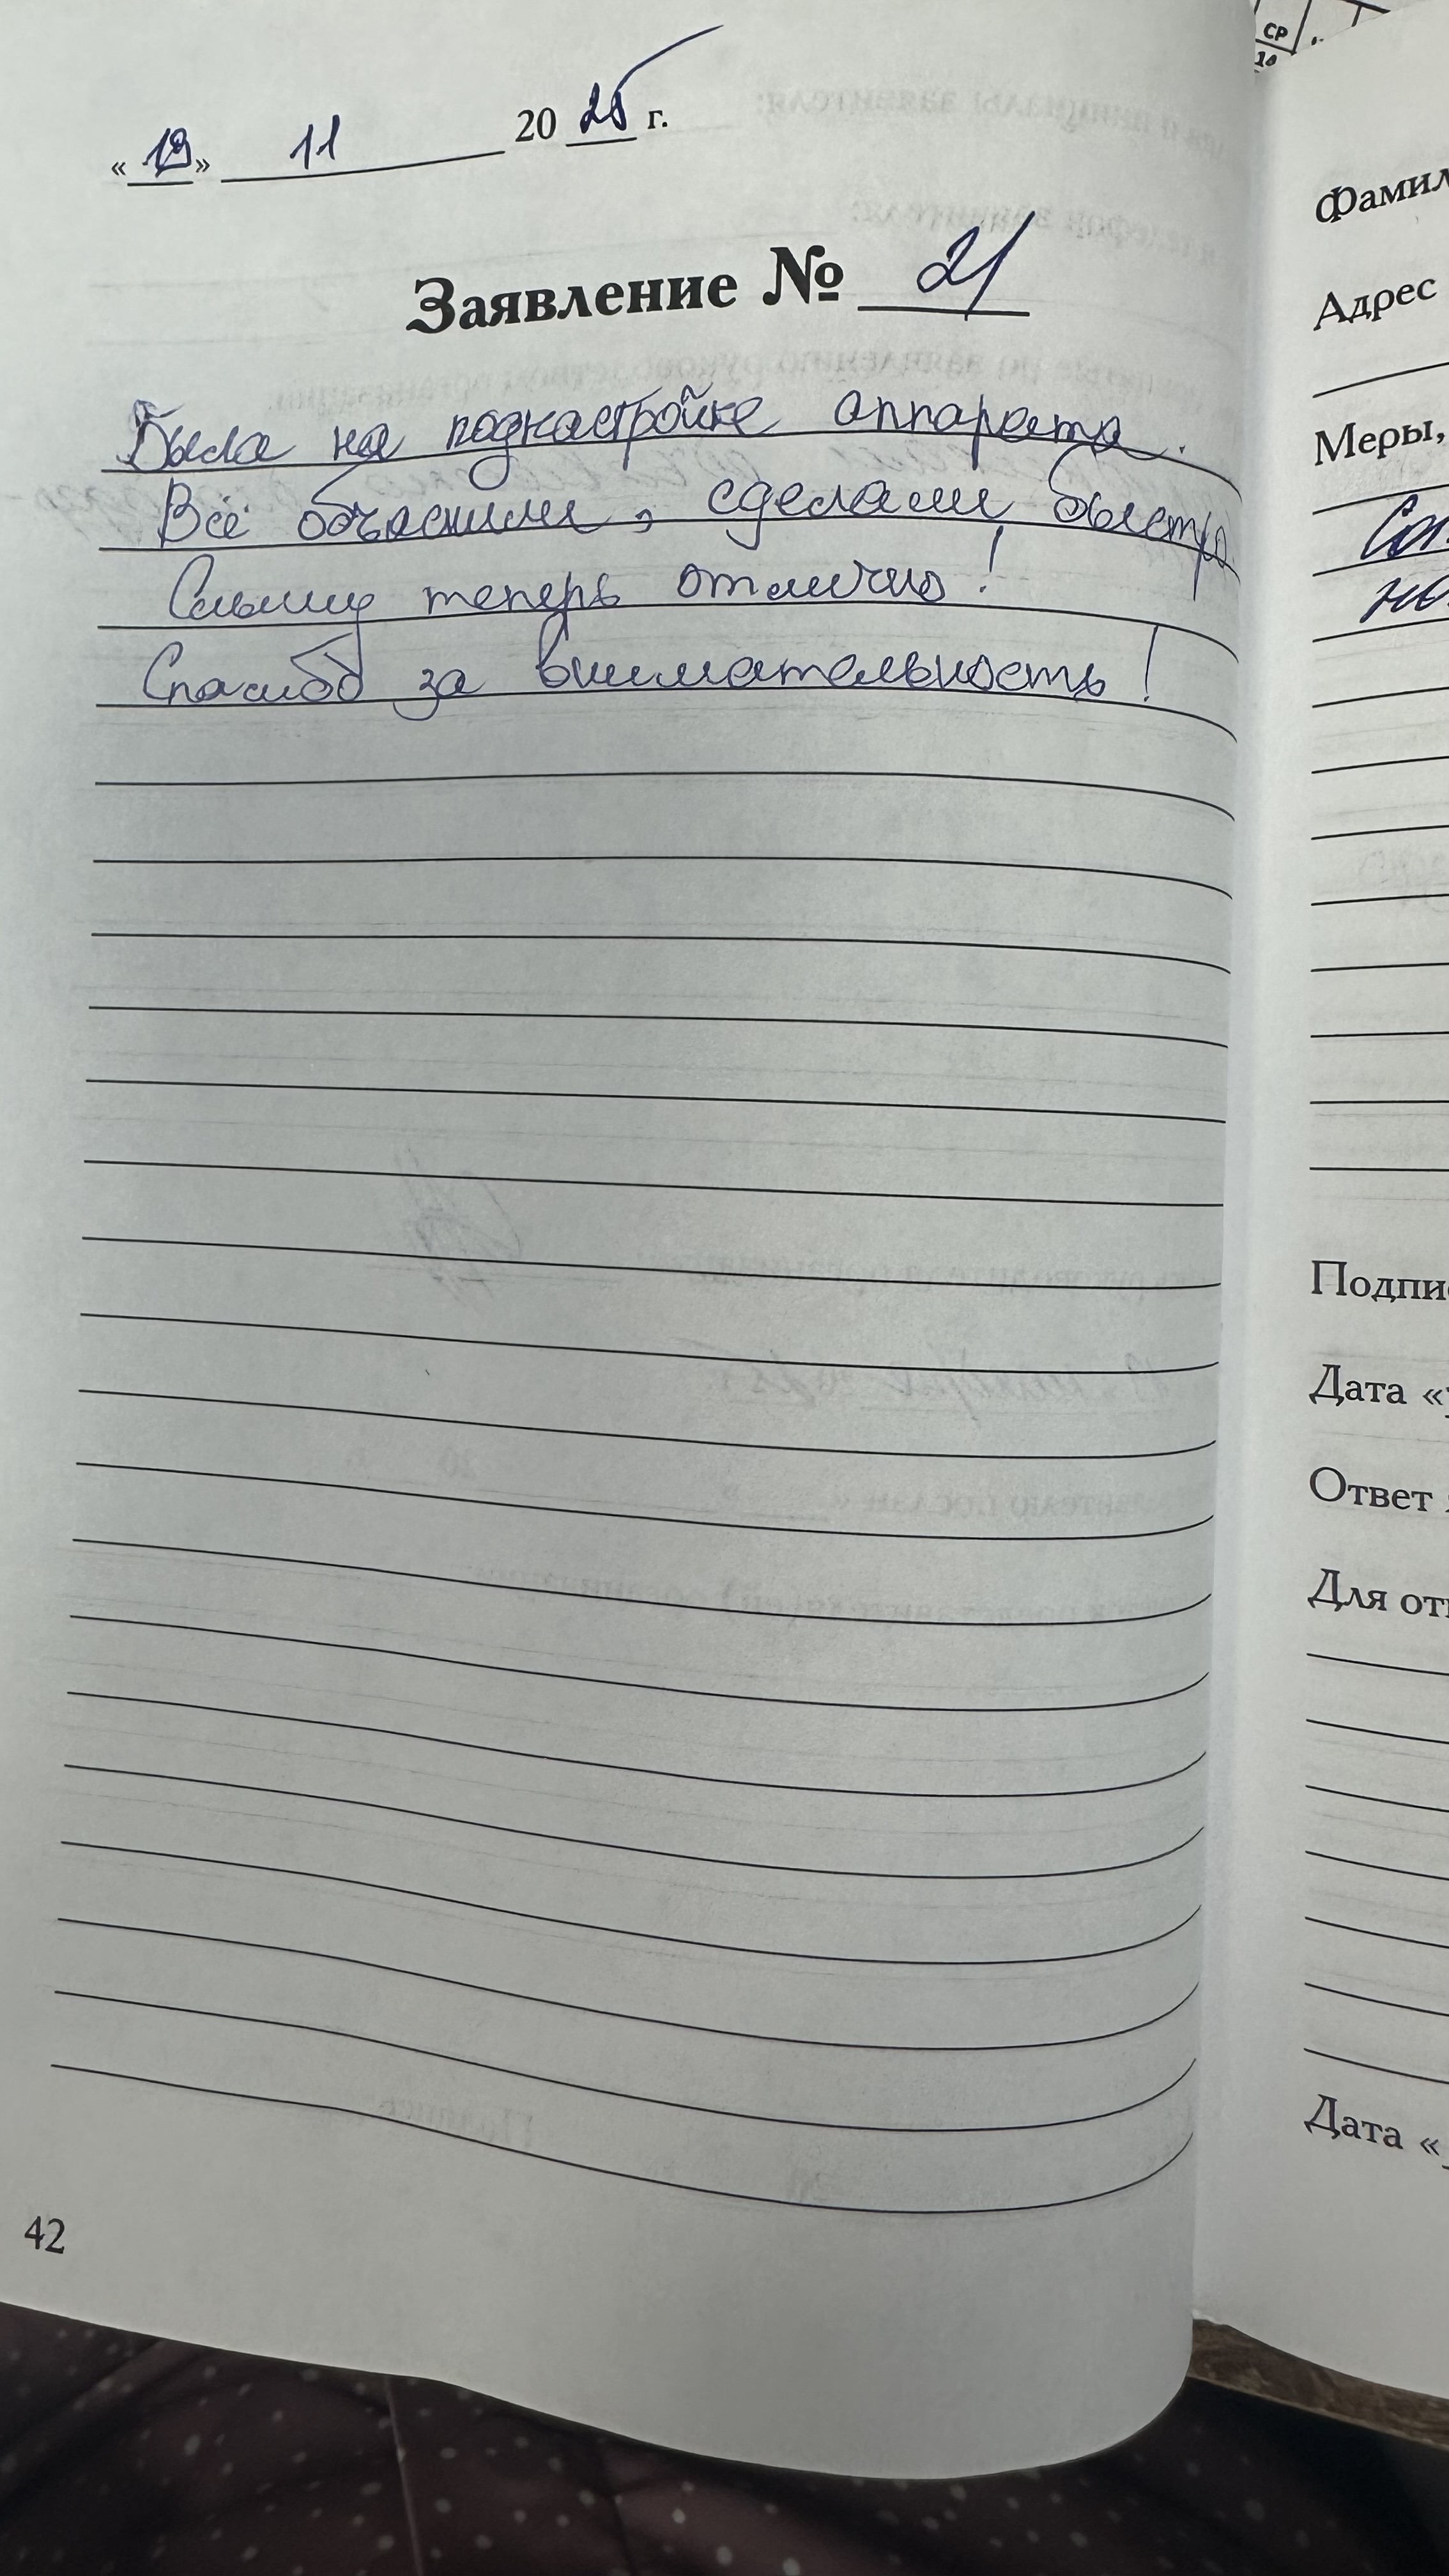 « 19 » 11 20 25 г.
Заявление № 21
Была на поднастройке аппарата.
Всё объяснили, сделали быстро
Слышу теперь отлично!
Спасибо за внимательность!
42
СР
Фамил
Адрес
Меры,
Подпи
Дата «
Ответ
Для от
Дата «